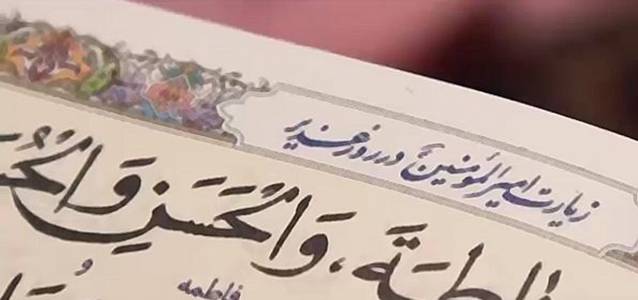 زیارت امیرالمؤمنین در روز غدیر
وَالْحَسَنِ وَالْحُ
فاطمه